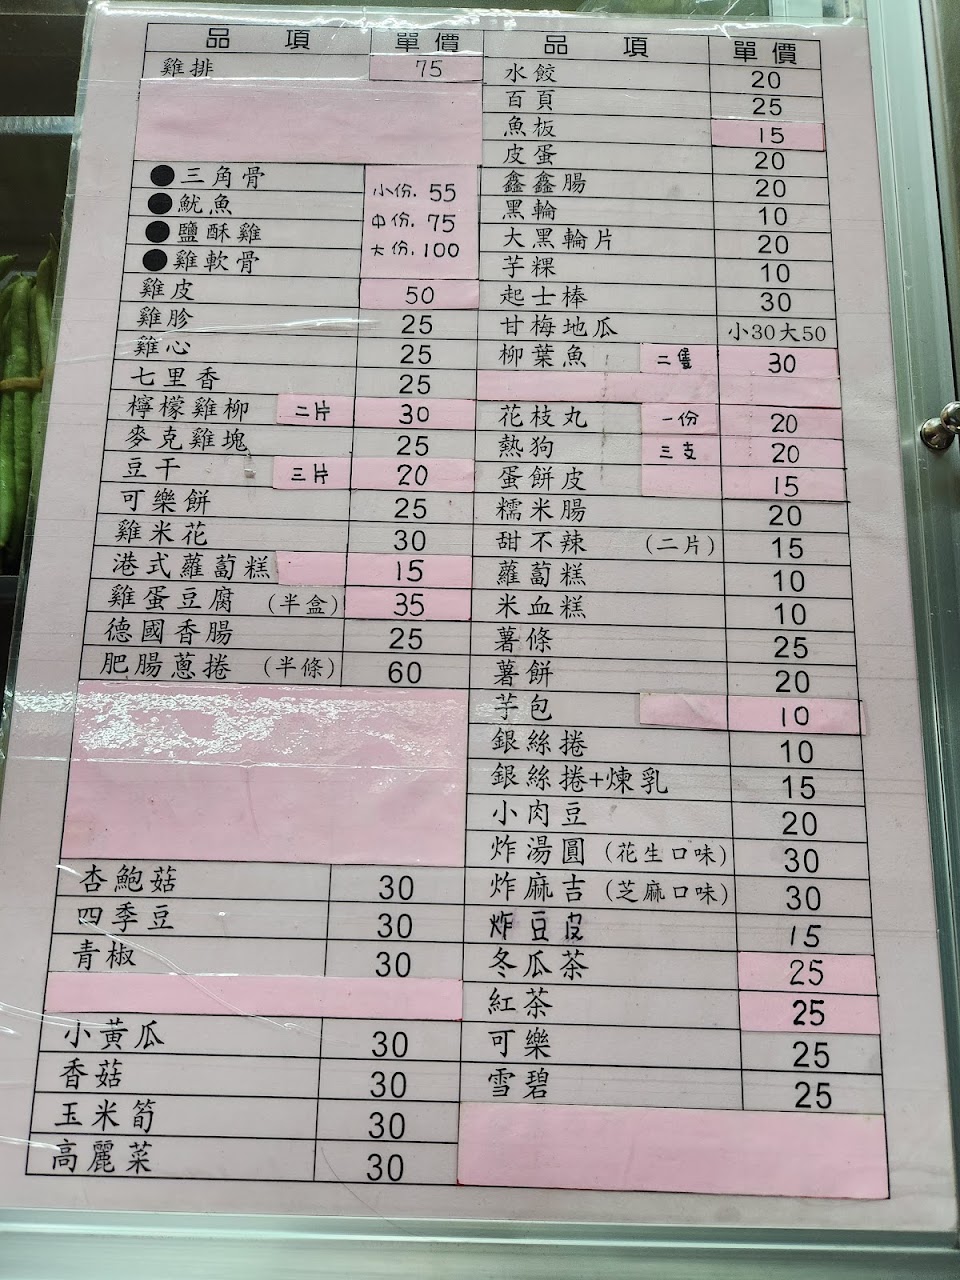 品 項 單價
雞排 75
●三角骨 小份. 55
●魷魚 中份. 75
●鹽酥雞 大份. 100
●雞軟骨
雞皮 50
雞胗 25
雞心 25
七里香 25
檸檬雞柳 二片 30
麥克雞塊 25
豆干 三片 20
可樂餅 25
雞米花 30
港式蘿蔔糕 15
雞蛋豆腐 (半盒) 35
德國香腸 25
肥腸蔥捲 (半條) 60
杏鮑菇 30
四季豆 30
青椒 30
小黃瓜 30
香菇 30
玉米筍 30
高麗菜 30
品 項 單價
水餃 20
百頁 25
魚板 15
皮蛋 20
鑫鑫腸 20
黑輪 10
大黑輪片 20
芋粿 10
起士棒 30
甘梅地瓜 小30大50
柳葉魚 二隻 30
花枝丸 一份 20
熱狗 三支 20
蛋餅皮 15
糯米腸 20
甜不辣 (二片) 15
蘿蔔糕 10
米血糕 10
薯條 25
薯餅 20
芋包 10
銀絲捲 10
銀絲捲+煉乳 15
小肉豆 20
炸湯圓 (花生口味) 30
炸麻吉 (芝麻口味) 30
炸豆皮 15
冬瓜茶 25
紅茶 25
可樂 25
雪碧 25